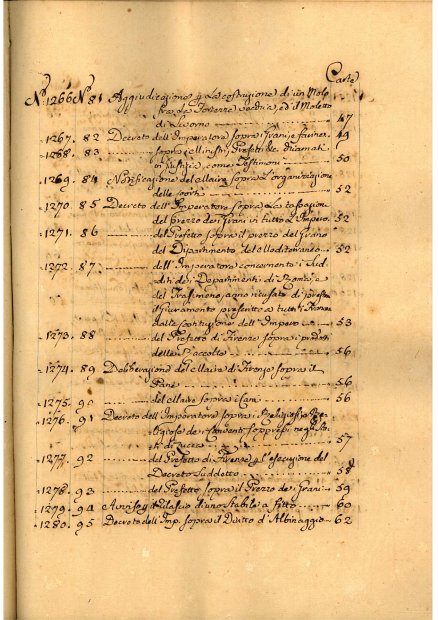 Carte
N.º 1266 N.º 81 Aggiudicazione p. La costruzione di un Molo
fra La Fortezza vecchia, ed il Moletto
di Livorno 47
1267. 82 Decreto dell'Imperatore sopra i Grani, e farine 49
1268. 83 sopra i Ministri, Prefetti &c. chiamati
in justizia, come Testimoni 50
1269. 84 Notificazione del Maire sopra L'organizzazione
delle 52
1270 85 Decreto dell'Imperatore sopra La tassazion
del prezzo dei Grani in tutto L'Impero 52
1271. 86 del Prefetto sopra il prezzo del Grano
del Dipartimento del Mediterraneo 52
1272. 87 dell'Imperatore concernente i Sud-
diti dei Dipartimenti di Roma, e
del Trasimeno, anno ricusato di prestare
il Giuramento
dalle costituzione dell'Impero 53
1273. 88 del Prefetto di Firenze sopra i
della Raccolta 56
1274. 89 Deliberazione del Maire di Firenze sopra il
Pane 56
1275. 90 del Maire sopra i Cani 56
1276. 91 Decreto dell'Imperatore sopra i Religiosi, e Re-
ligiose dei Conventi soppressi negli Sta-
ti di Lucca 57
1277. 92 del Prefetto di Firenze p. L'esecuzione del
Decreto Suddetto 58
1278. 93 del Prefetto sopra il Prezzo dei Grani 59
1279. 94 Avviso p. il rilascio d'uno stabile a fitto 60
1280. 95 Decreto dell'Imp. sopra il Diritto d'Albinaggio 62